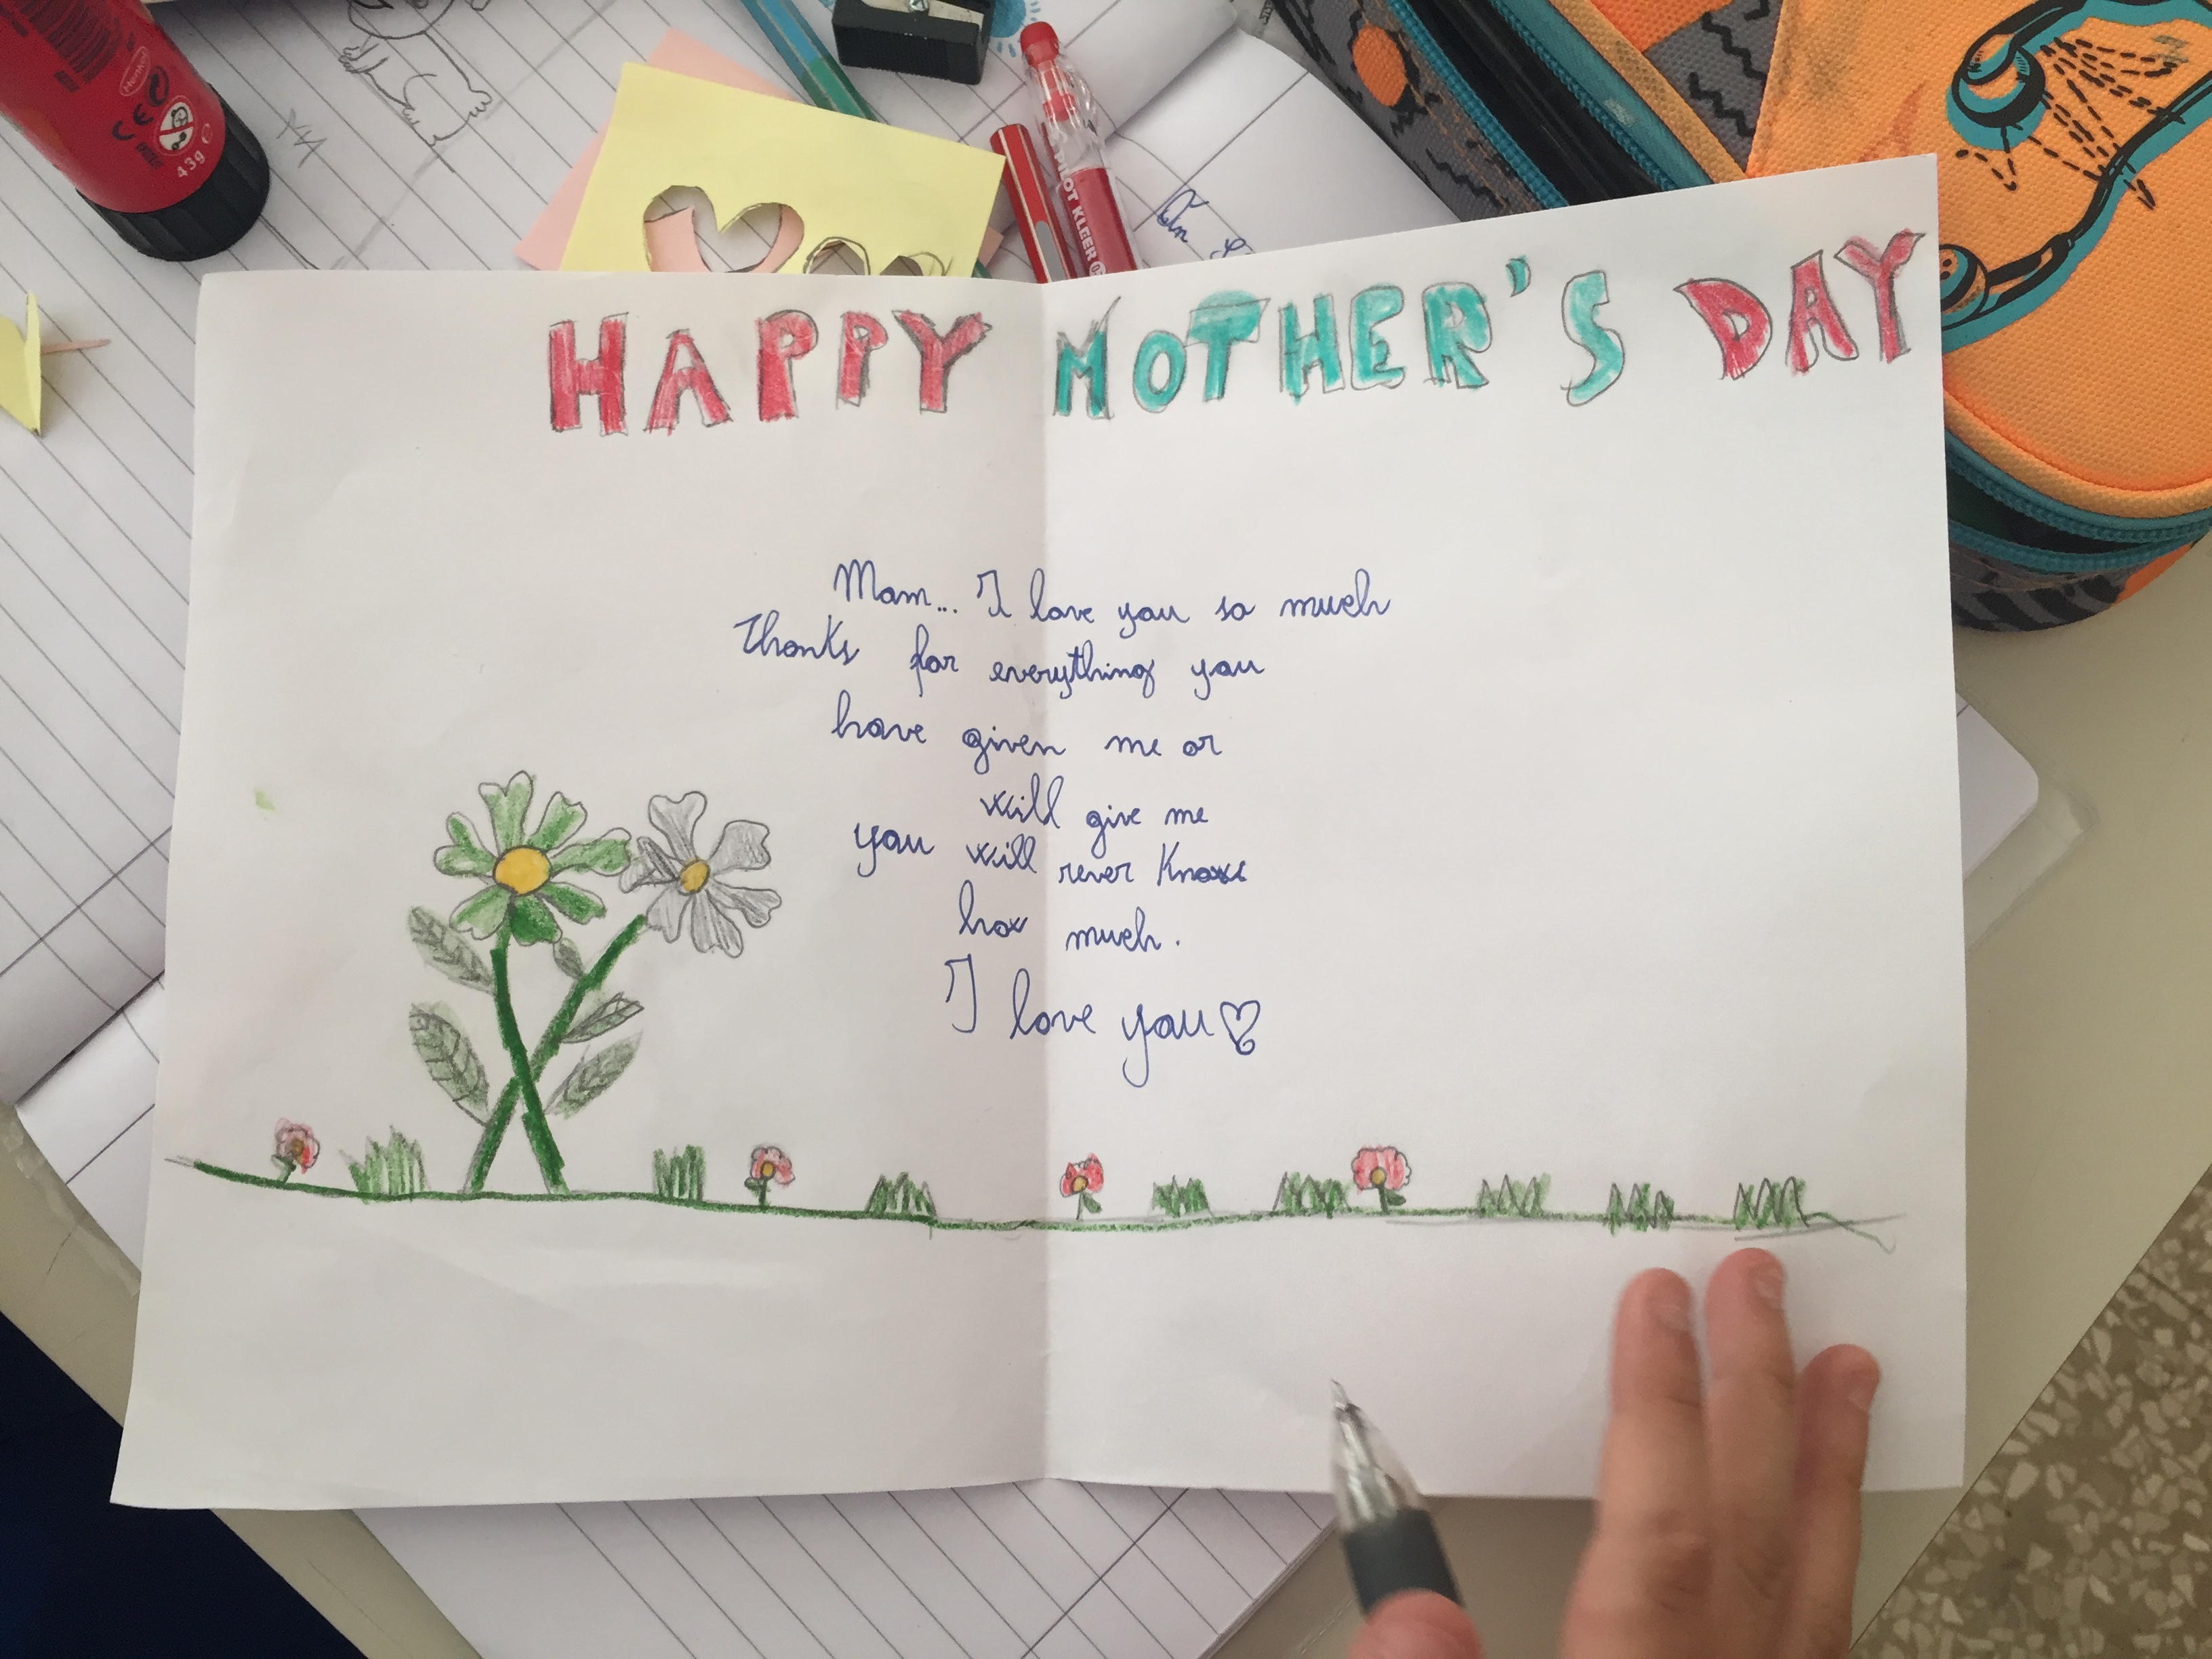 Henkel
CE
43g e
PILOT KLEER
HAPPY MOTHER'S DAY
Mom... I love you so much
Thanks for everything you
have given me or
will give me
you will never know
how much.
I love you